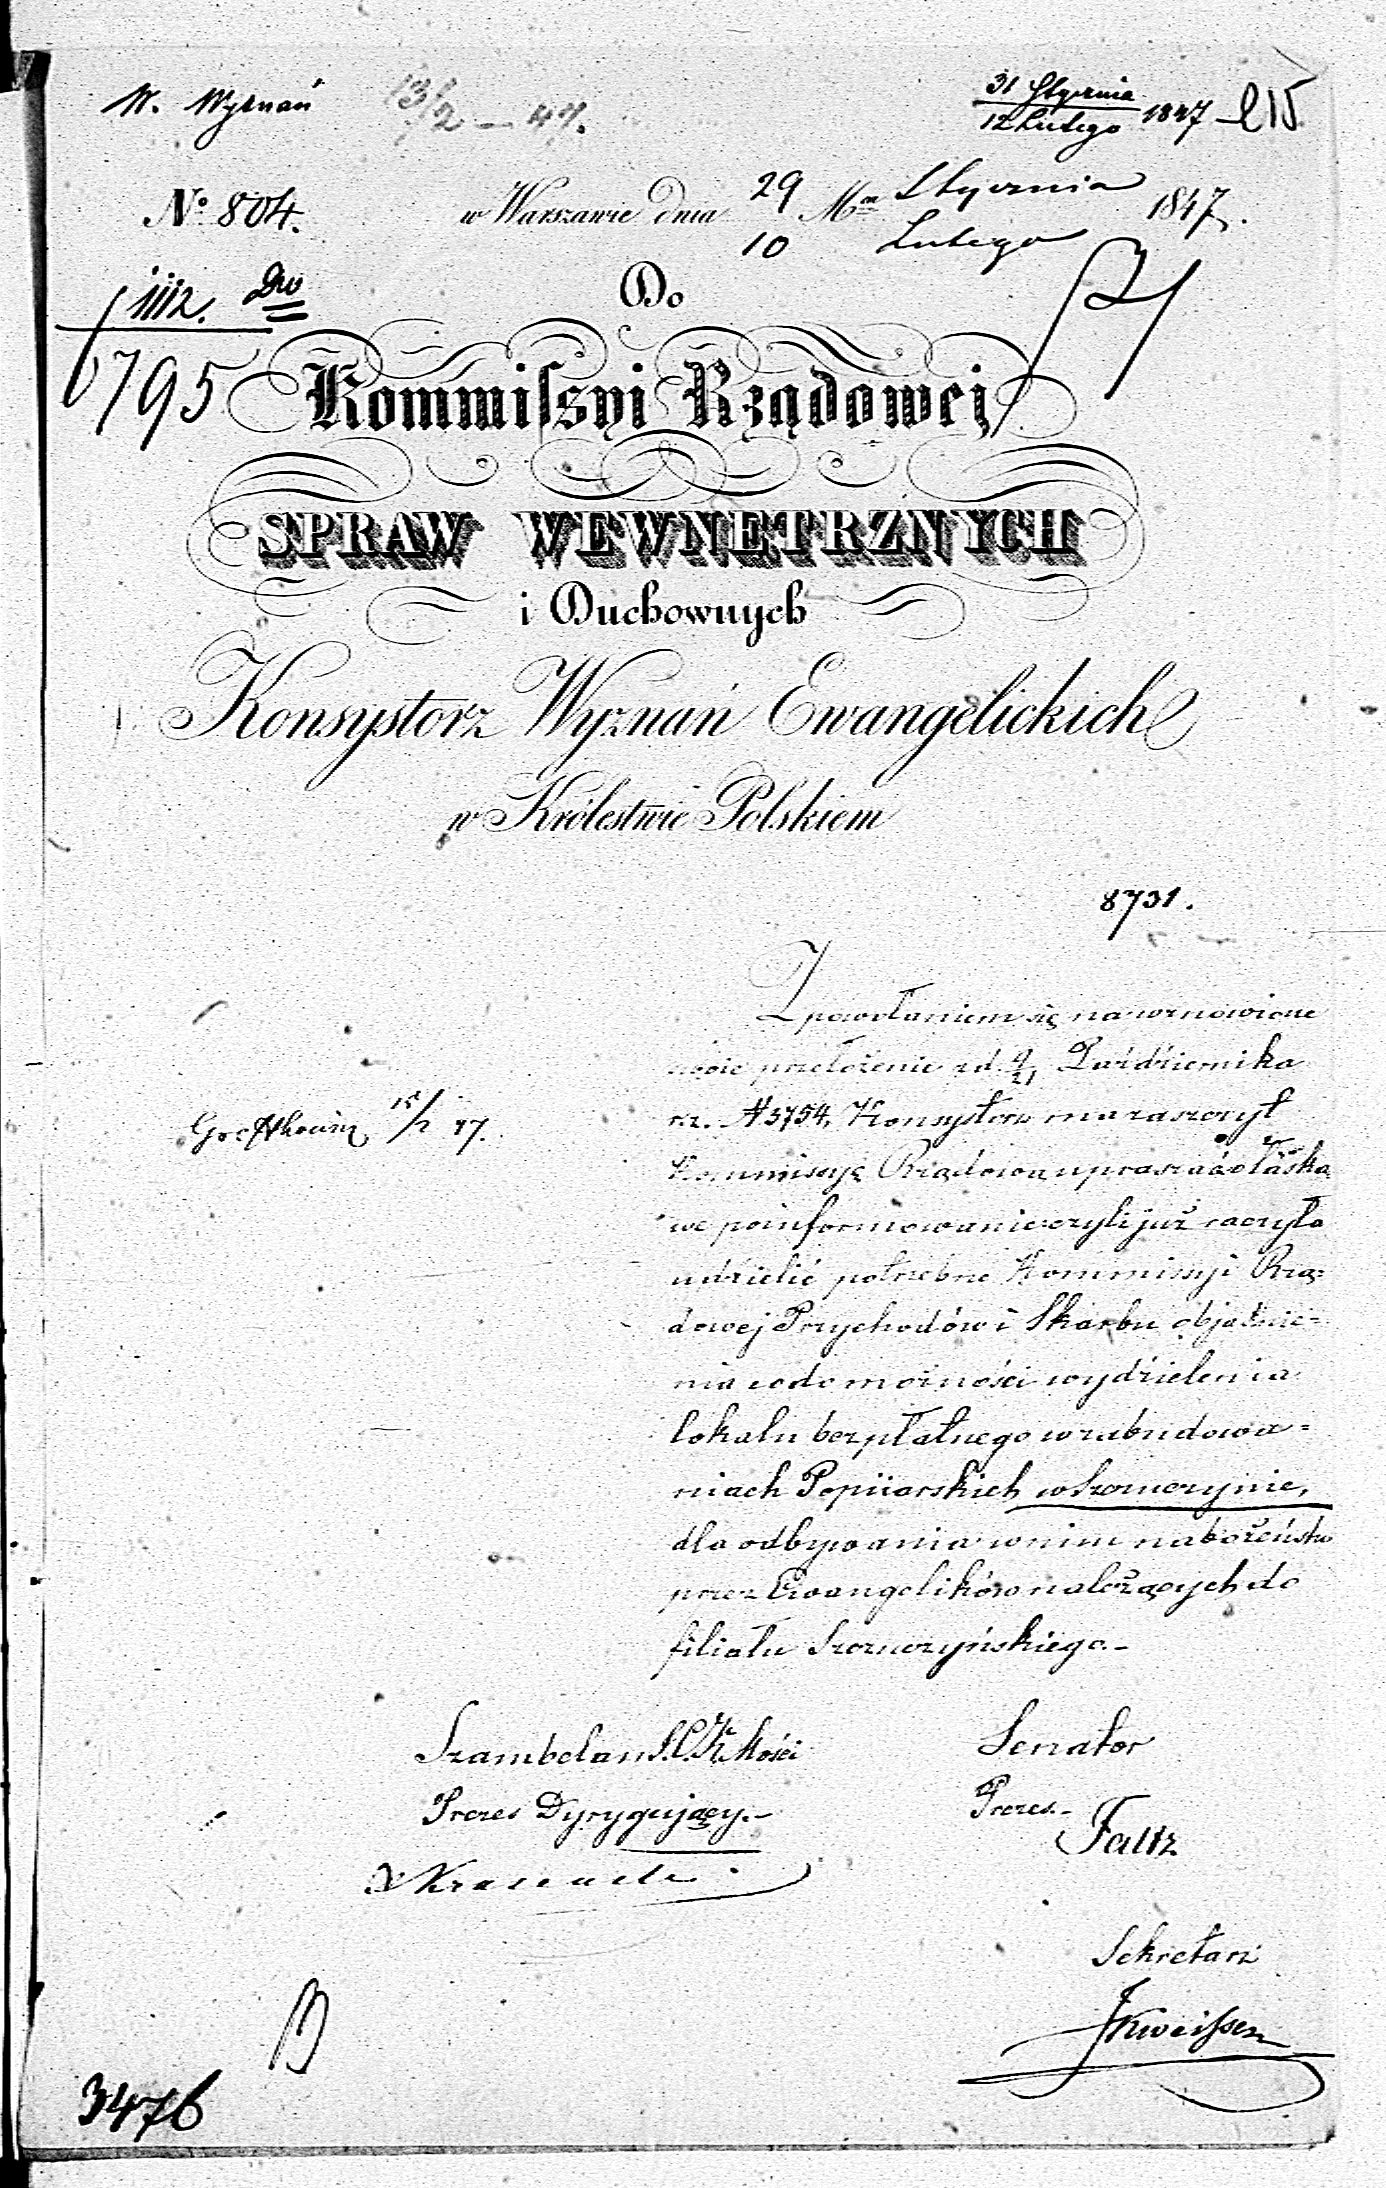 W. Wyznań 13/2 – 47. 31 Stycznia / 12 Lutego 1847 215
No 804. w Warszawie dnia 29 / 10 Mca Stycznia / Lutego 1847.
1112.
795
Do
Kommissyi Rządowej
SPRAW WEWNĘTRZNYCH
i Duchownych
Konsystorz Wyznań Ewangelickich
w Królestwie Polskiem
8731.
Z powołaniem się na wznowione
swoie przełożenie z d. 9/21 Października
r.z. N 3754, Konsystorz ma zaszczyt
Kommissyę Rządową upraszać o łaska
we poinformowanie czyli już raczyła
udzielić potrzebne Kommissyi Rzą=
dowej Przychodów i Skarbu objaśnie=
nia co do możności wydzielenia
lokalu bezpłatnego w zabudowa=
niach Popiiarskich w Szczuczynie,
dla odbywania w nim nabożeństw
przez Ewangelików należących do
filiału Szczuczyńskiego.–
15/2 47.
Szambelan J.C.K. Mości Senator
Prezes Dyrygujący.– Prezes.–
Faltz
Sekretarz
3476